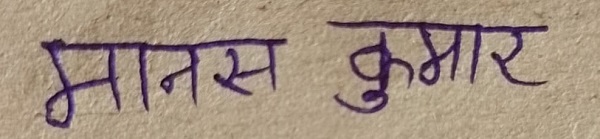 मानस कुमार